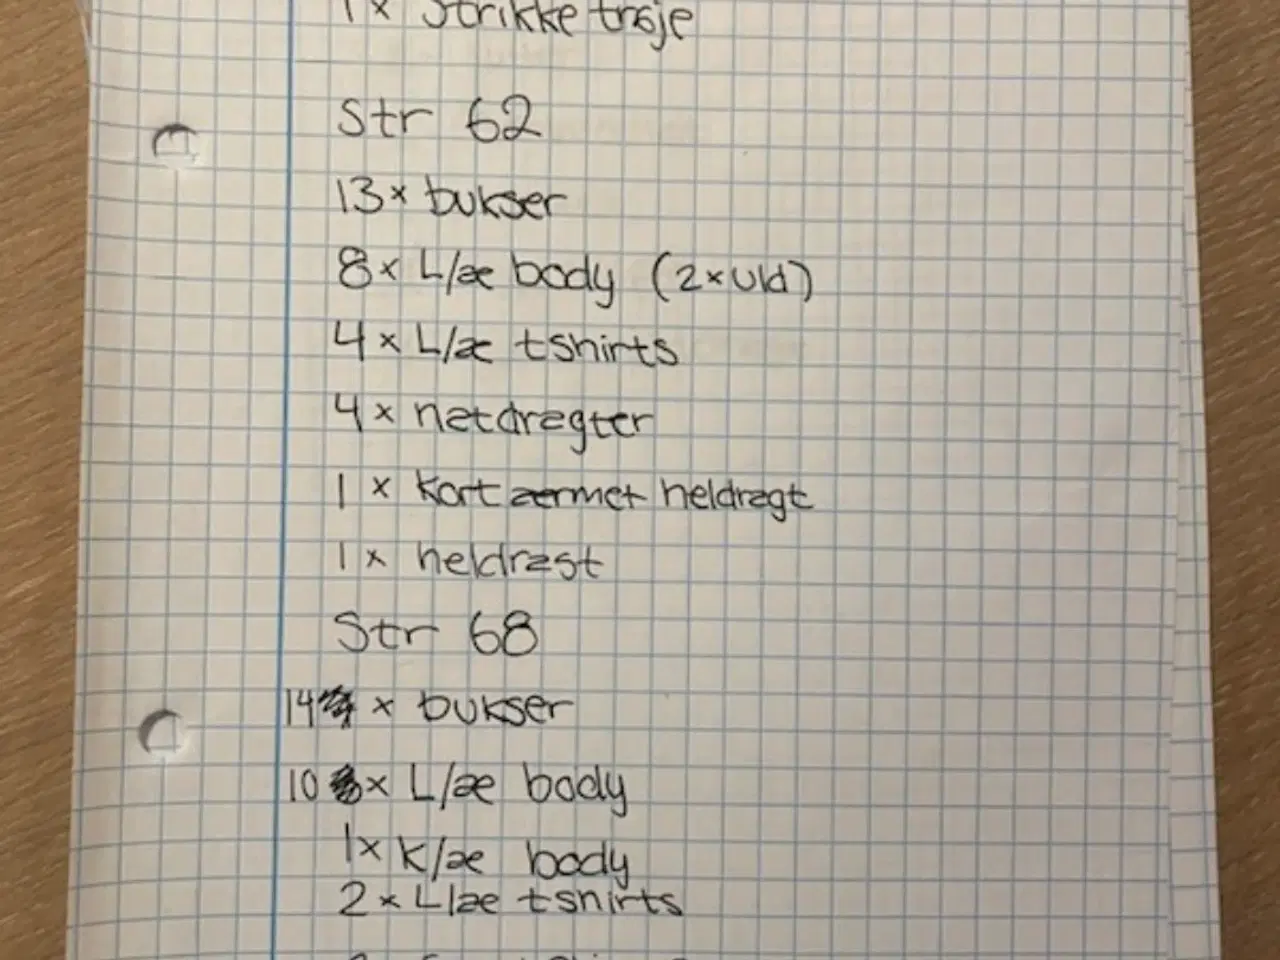 1 x Strikke trøje
Str 62
13 x bukser
8 x L/æ body (2 x uld)
4 x L/æ tshirts
4 x natdragter
1 x kortærmet heldragt
1 x heldragt
Str 68
14 x bukser
10 x L/æ body
1 x K/æ body
2 x L/æ tshirts